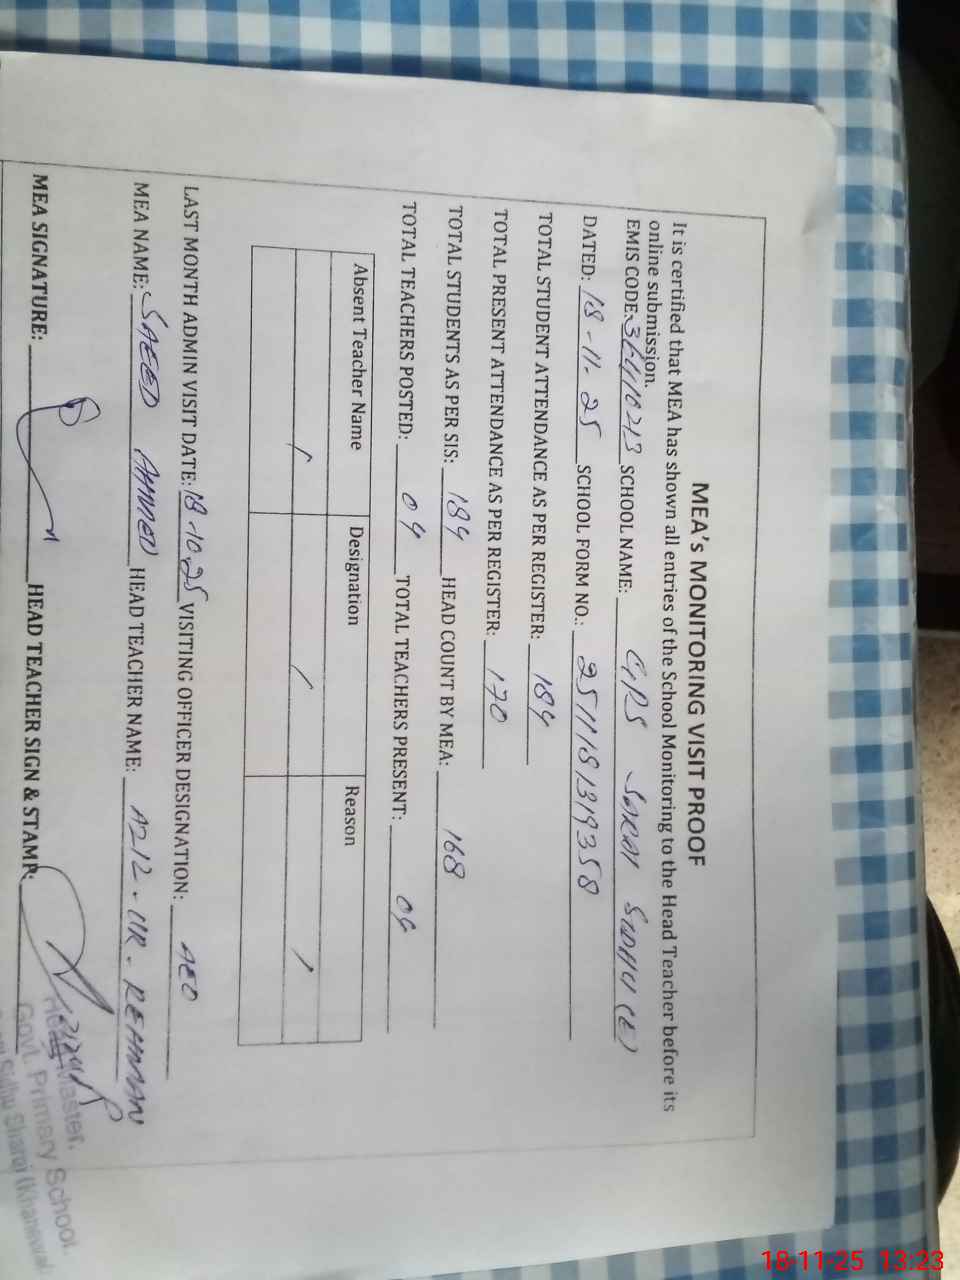 MEA's MONITORING VISIT PROOF
It is certified that MEA has shown all entries of the School Monitoring to the Head Teacher before its
online submission.
EMIS CODE: 36410213 SCHOOL NAME: GPS SARAI SIDHU (E)
DATED: 18-11-25 SCHOOL FORM NO.: 2511181319358
TOTAL STUDENT ATTENDANCE AS PER REGISTER: 184
TOTAL PRESENT ATTENDANCE AS PER REGISTER: 170
TOTAL STUDENTS AS PER SIS: 184 HEAD COUNT BY MEA: 168
TOTAL TEACHERS POSTED: 04 TOTAL TEACHERS PRESENT: 04
Absent Teacher Name Designation Reason
LAST MONTH ADMIN VISIT DATE: 18-10-25 VISITING OFFICER DESIGNATION: AEO
MEA NAME: SAEED AHMED HEAD TEACHER NAME: AZIZ-UR-REHMAN
MEA SIGNATURE: HEAD TEACHER SIGN & STAMP:
Head Master,
Govt. Primary School.
Sidhu Sharqi (Khanewal
18-11-25 13:23